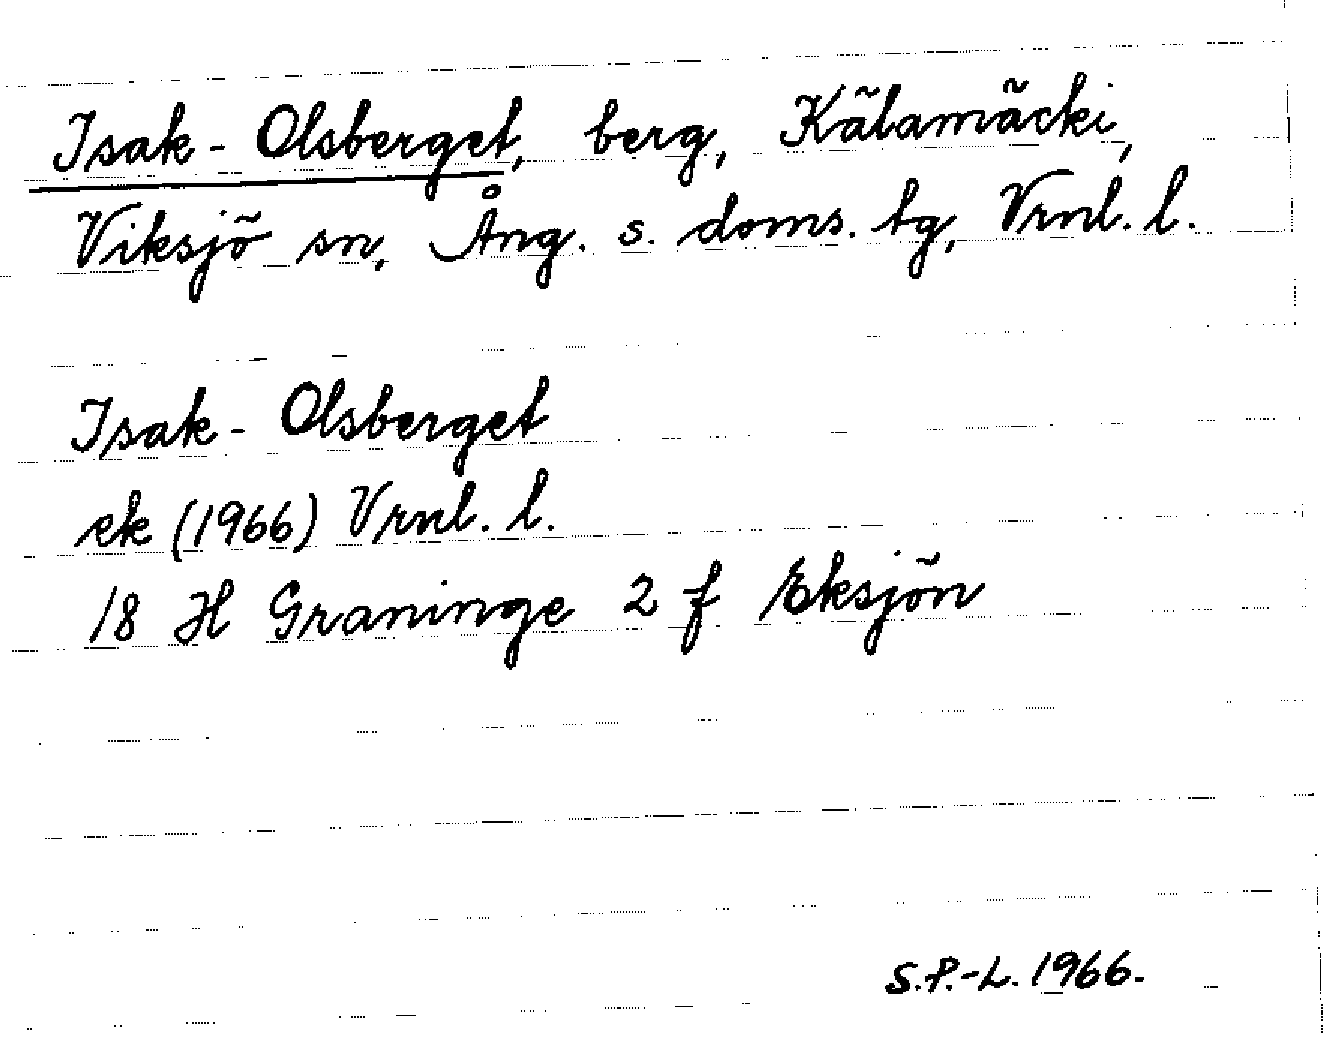 Isak-Olsberget, berg, Kälamäcki,
Viksjö sn, Ång. s. doms. tg, Vrnl. l.
Isak-Olsberget
ek (1966) Vrnl. l.
18 H Graninge 2 f Eksjön
S.P.-L. 1966.